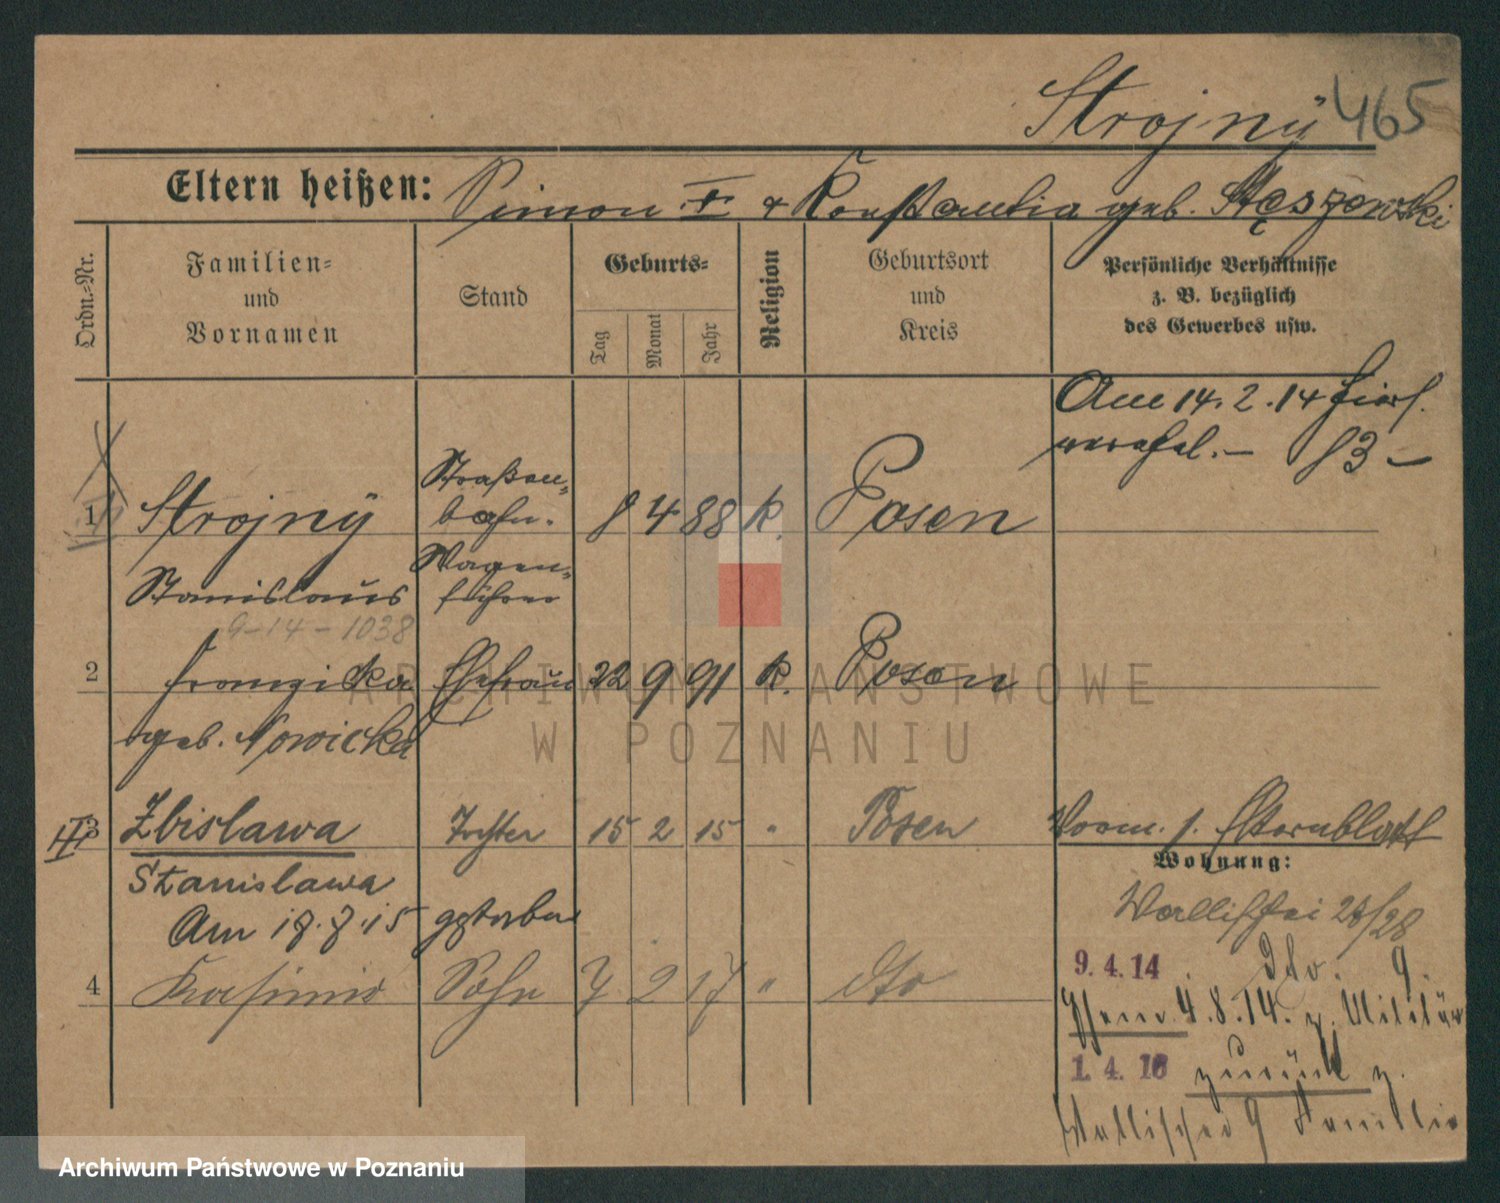 Strojnÿ 465
Eltern heißen: Simon † & Konstantia geb. Stęszewski
Ordn.-Nr.
Familien-
und
Vornamen
Stand
Geburts-
Tag
Monat
Jahr
Religion
Geburtsort
und
Kreis
Persönliche Verhältnisse
z. B. bezüglich
des Gewerbes usw.
Am 14.2.14 hier
verehel. – 83 –
1 Strojnÿ Straßen- 8 4 88 k. Posen
bahn-
Stanislaus Wagen-
führer
9-14-1038
2 Franziska Ehefrau 22 9 91 k. Posen
geb. Nowicka
III 3 Zbislawa Tochter 15 2 15 " Posen Vorm. s. Elternblatt
Stanislawa
Am 17.7.15 gestorben
Wohnung:
Wallischei 27/28
4 Kasimir Sohn 7 2 17 " dto
9.4.14 dto. 9.
Ehem. 4.8.14. z. Militär
1.4.16 zurück z.
Wallischei 9 Familie
ARCHIWUM PAŃSTWOWE
W POZNANIU
Archiwum Państwowe w Poznaniu